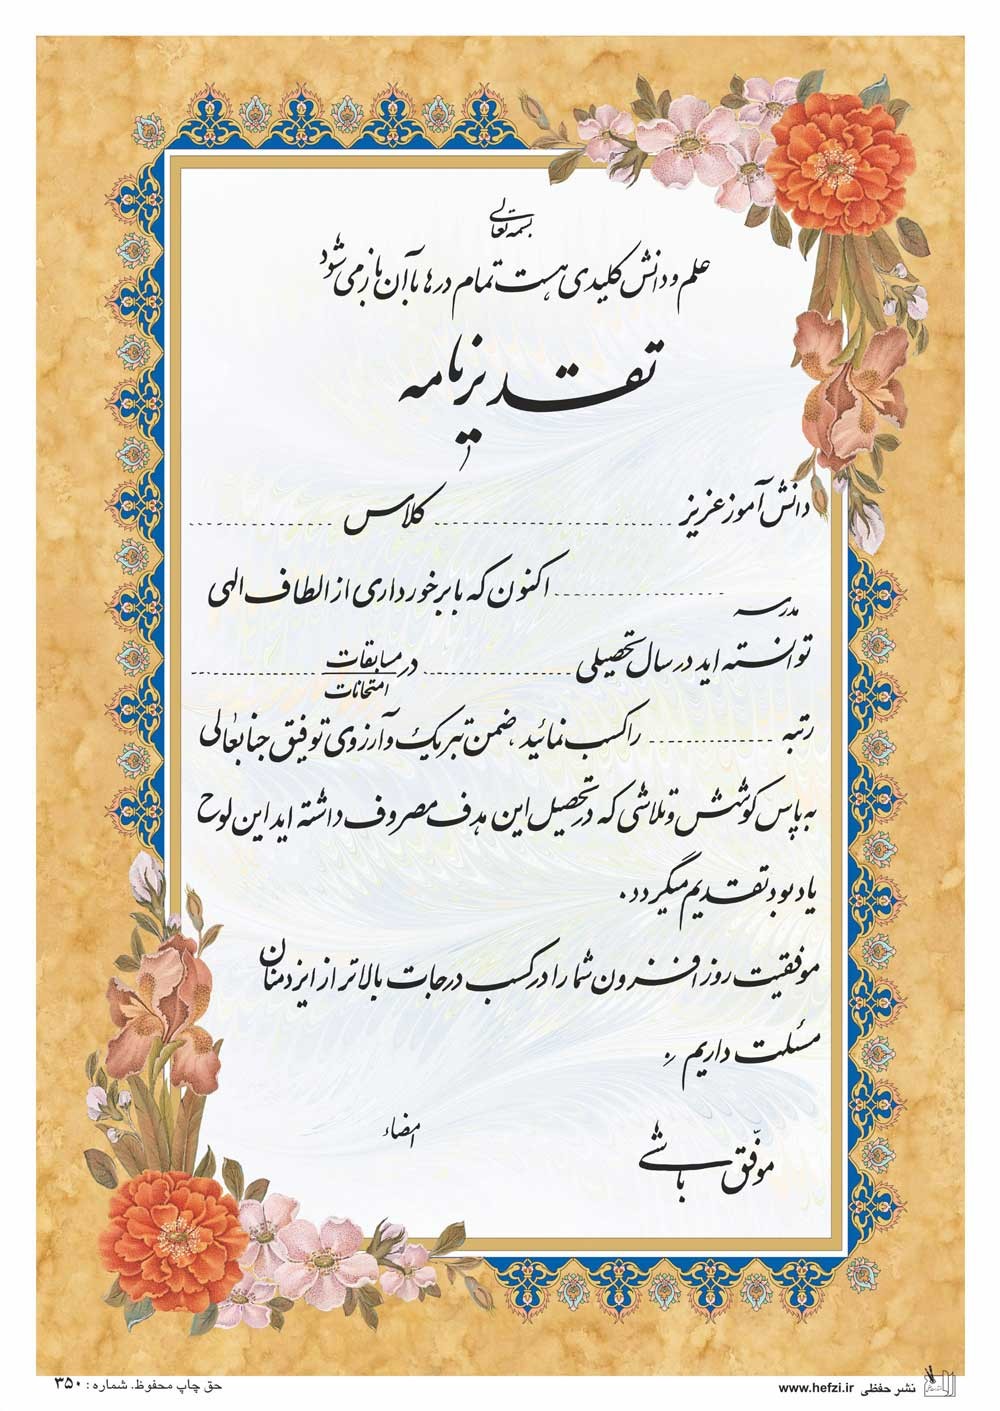 بسمه تعالی
علم و دانش کلیدی هست تمام درها با آن باز می شود
تقدیرنامه
دانش آموز عزیز ............................ کلاس ................
مدرسه .................... اکنون که با برخورداری از الطاف الهی
توانسته اید در سال تحصیلی ................ در مسابقات / امتحانات ................
رتبه ................ را کسب نمائید، ضمن تبریک و آرزوی توفیق جنابعالی
به پاس کوشش و تلاشی که در تحصیل این هدف مصروف داشته اید این لوح
یادبود تقدیم میگردد.
موفقیت روز افزون شما را در کسب درجات بالاتر از ایزد منان
مسئلت داریم
موفّق باشی
امضاء
نشر حفظی www.hefzi.ir
حق چاپ محفوظ. شماره: ۳۵۰